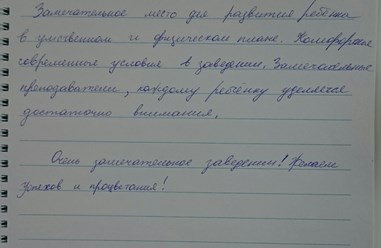 Замечательное место для развития ребёнка
в умственном и физическом плане. Комфортные
современные условия в заведении. Замечательные
преподаватели, каждому ребёнку уделяется
достаточно внимания.
Очень замечательное заведение! Желаем
успехов и процветания!